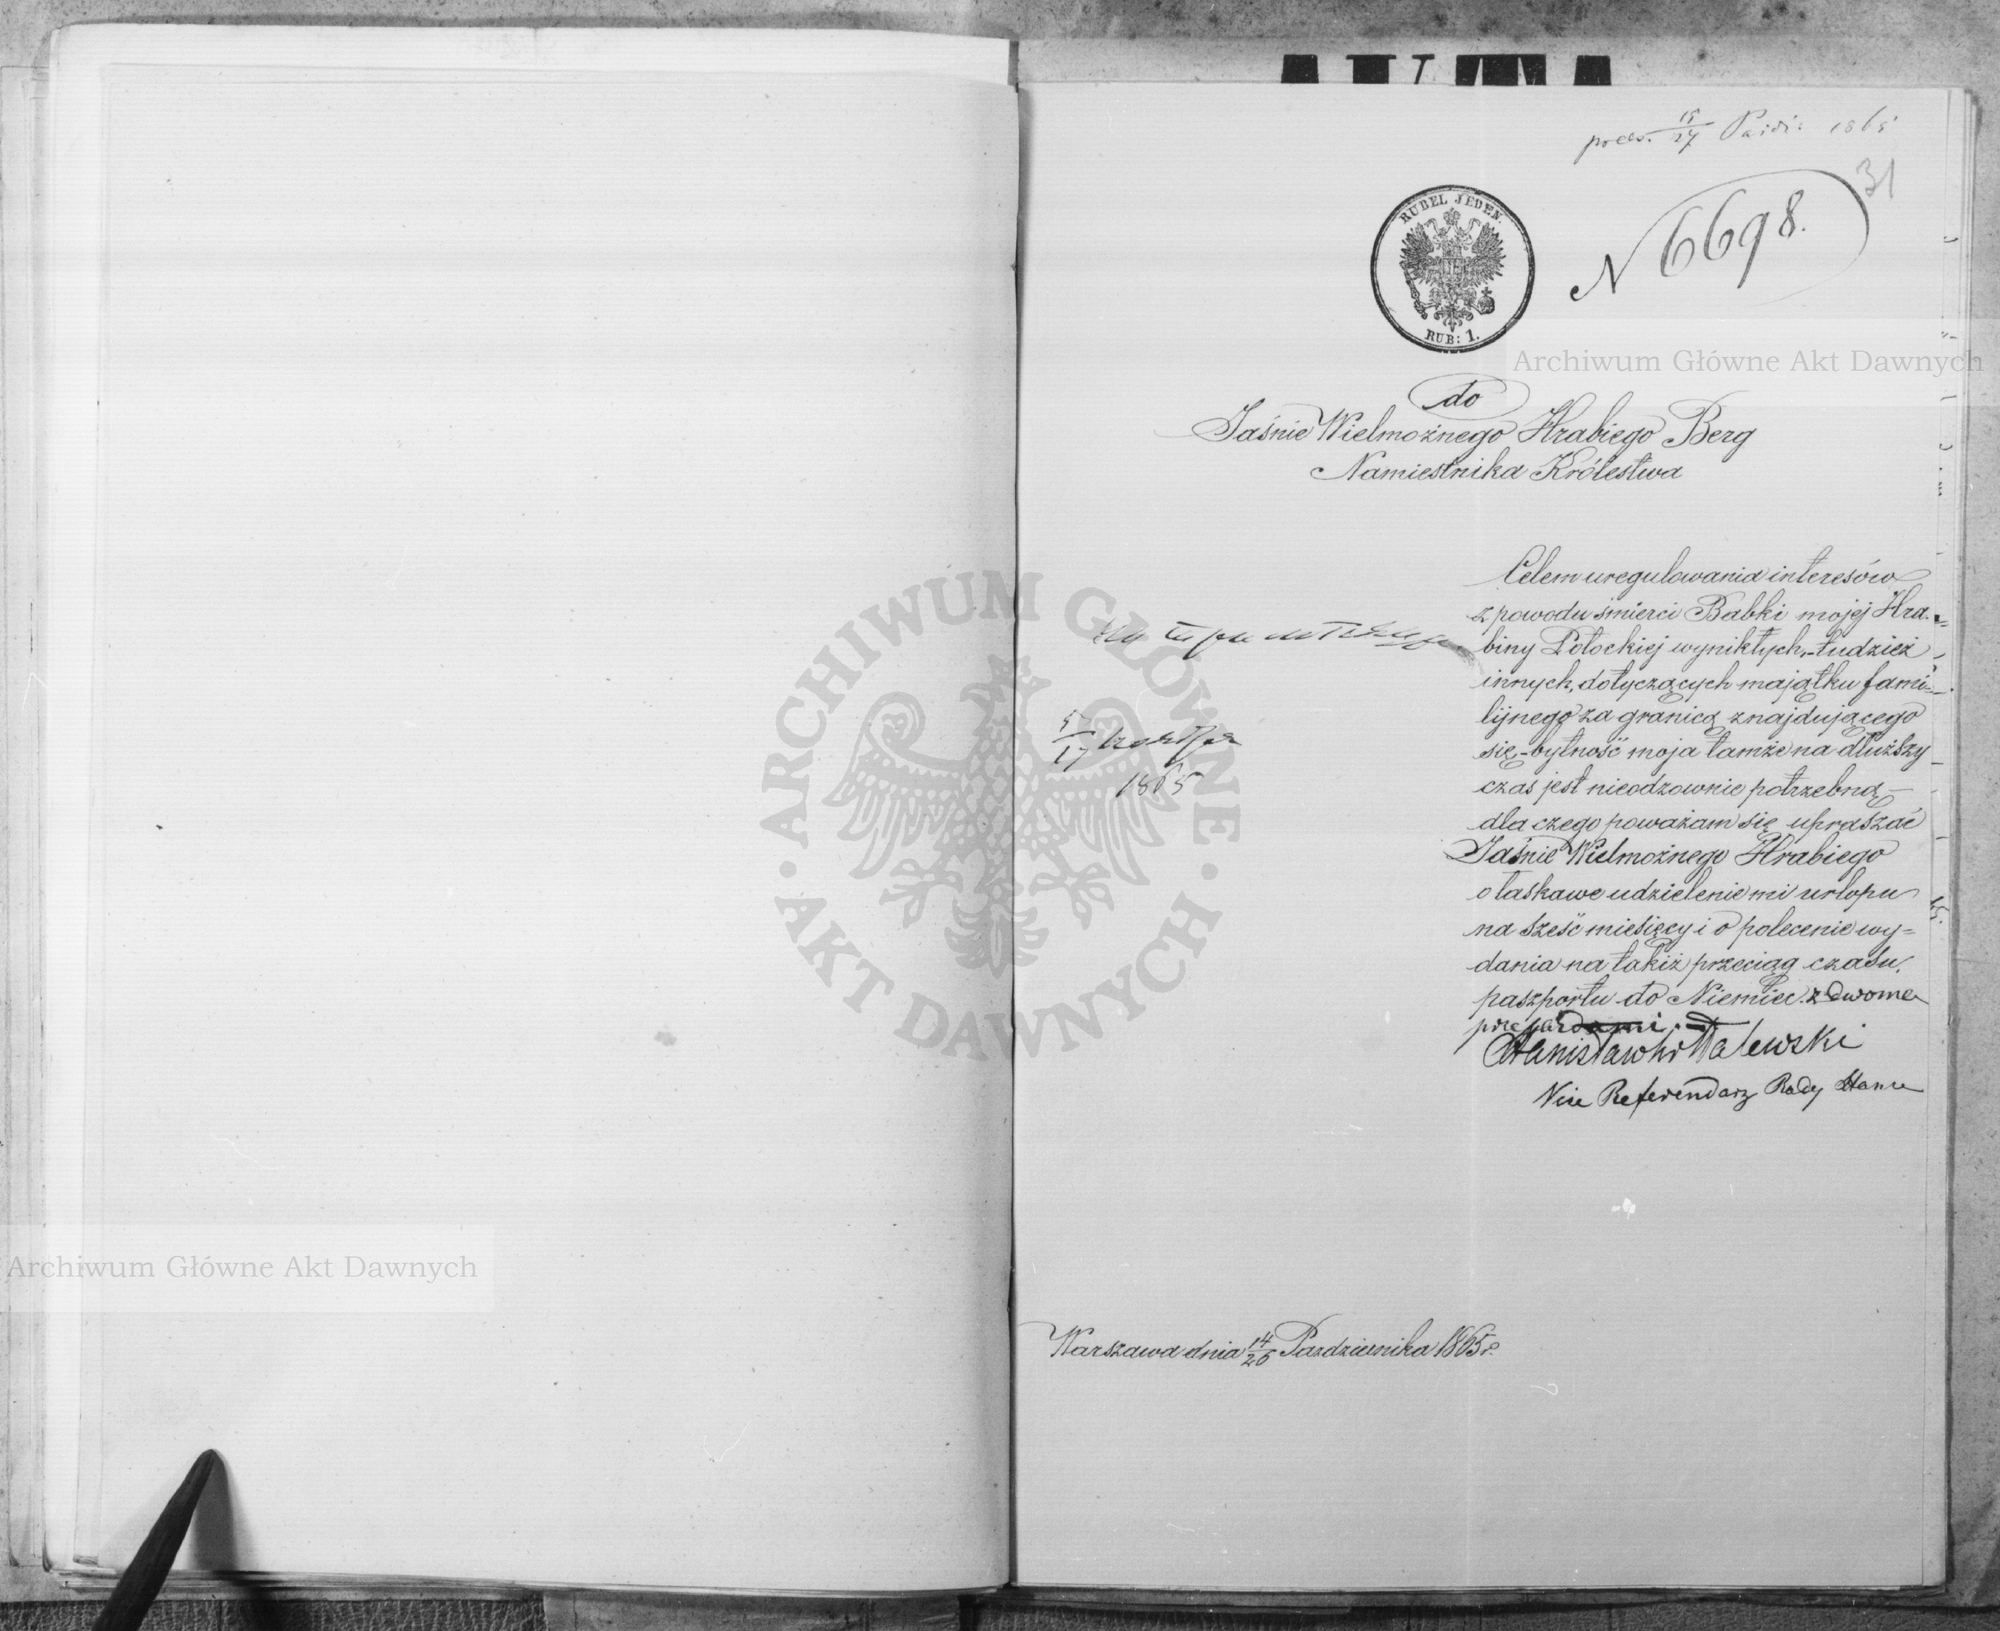 15/27 Paźdz: 1865
31
N 6698.
RUBEL JEDEN.
RUB: 1.
Archiwum Główne Akt Dawnych
do
Jaśnie Wielmożnego Hrabiego Berg
Namiestnika Królestwa
Celem uregulowania interesów
z powodu śmierci Babki mojej Hra-
biny Potockiej wynikłych, – tudzież
innych, dotyczących majątku fami-
lijnego za granicą znajdującego
się, – bytność moja tamże na dłuższy
czas jest nieodzownie potrzebną –
dla czego poważam się upraszać
Jaśnie Wielmożnego Hrabiego
o łaskawe udzielenie mi urlopu
na sześć miesięcy i o polecenie wy=
dania na takiż przeciąg czasu,
paszportu do Niemiec z dwoma
Stanisław hr Walewski
Vice Referendarz Rady Stanu
5/17
1865
Warszawa dnia 14/26 Pazdziernika 1865 r.
ARCHIWUM GŁÓWNE
AKT DAWNYCH
Archiwum Główne Akt Dawnych